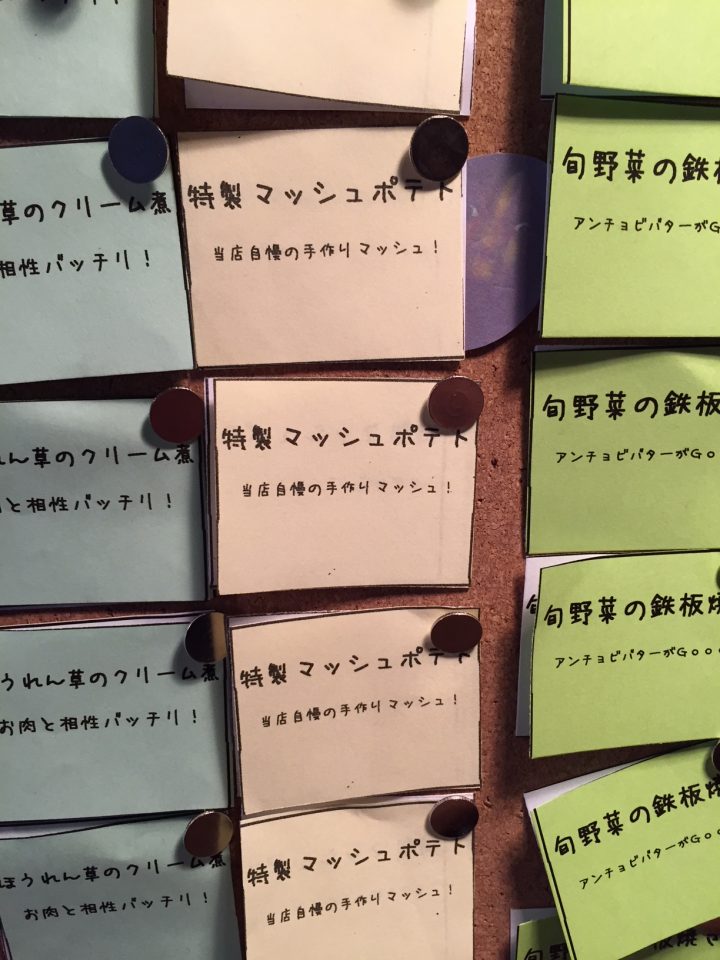 草のクリーム煮
相性バッチリ！
特製マッシュポテト
当店自慢の手作りマッシュ！
旬野菜の鉄板
アンチョビバターがG
れん草のクリーム煮
と相性バッチリ！
特製マッシュポテト
当店自慢の手作りマッシュ！
旬野菜の鉄板
アンチョビバターがGo
うれん草のクリーム煮
お肉と相性バッチリ！
特製マッシュポテト
当店自慢の手作りマッシュ！
旬野菜の鉄板焼
アンチョビバターがGoo
ほうれん草のクリーム煮
お肉と相性バッチリ！
特製マッシュポテト
当店自慢の手作りマッシュ！
旬野菜の鉄板焼
アンチョビバターがGoo
旬
板焼